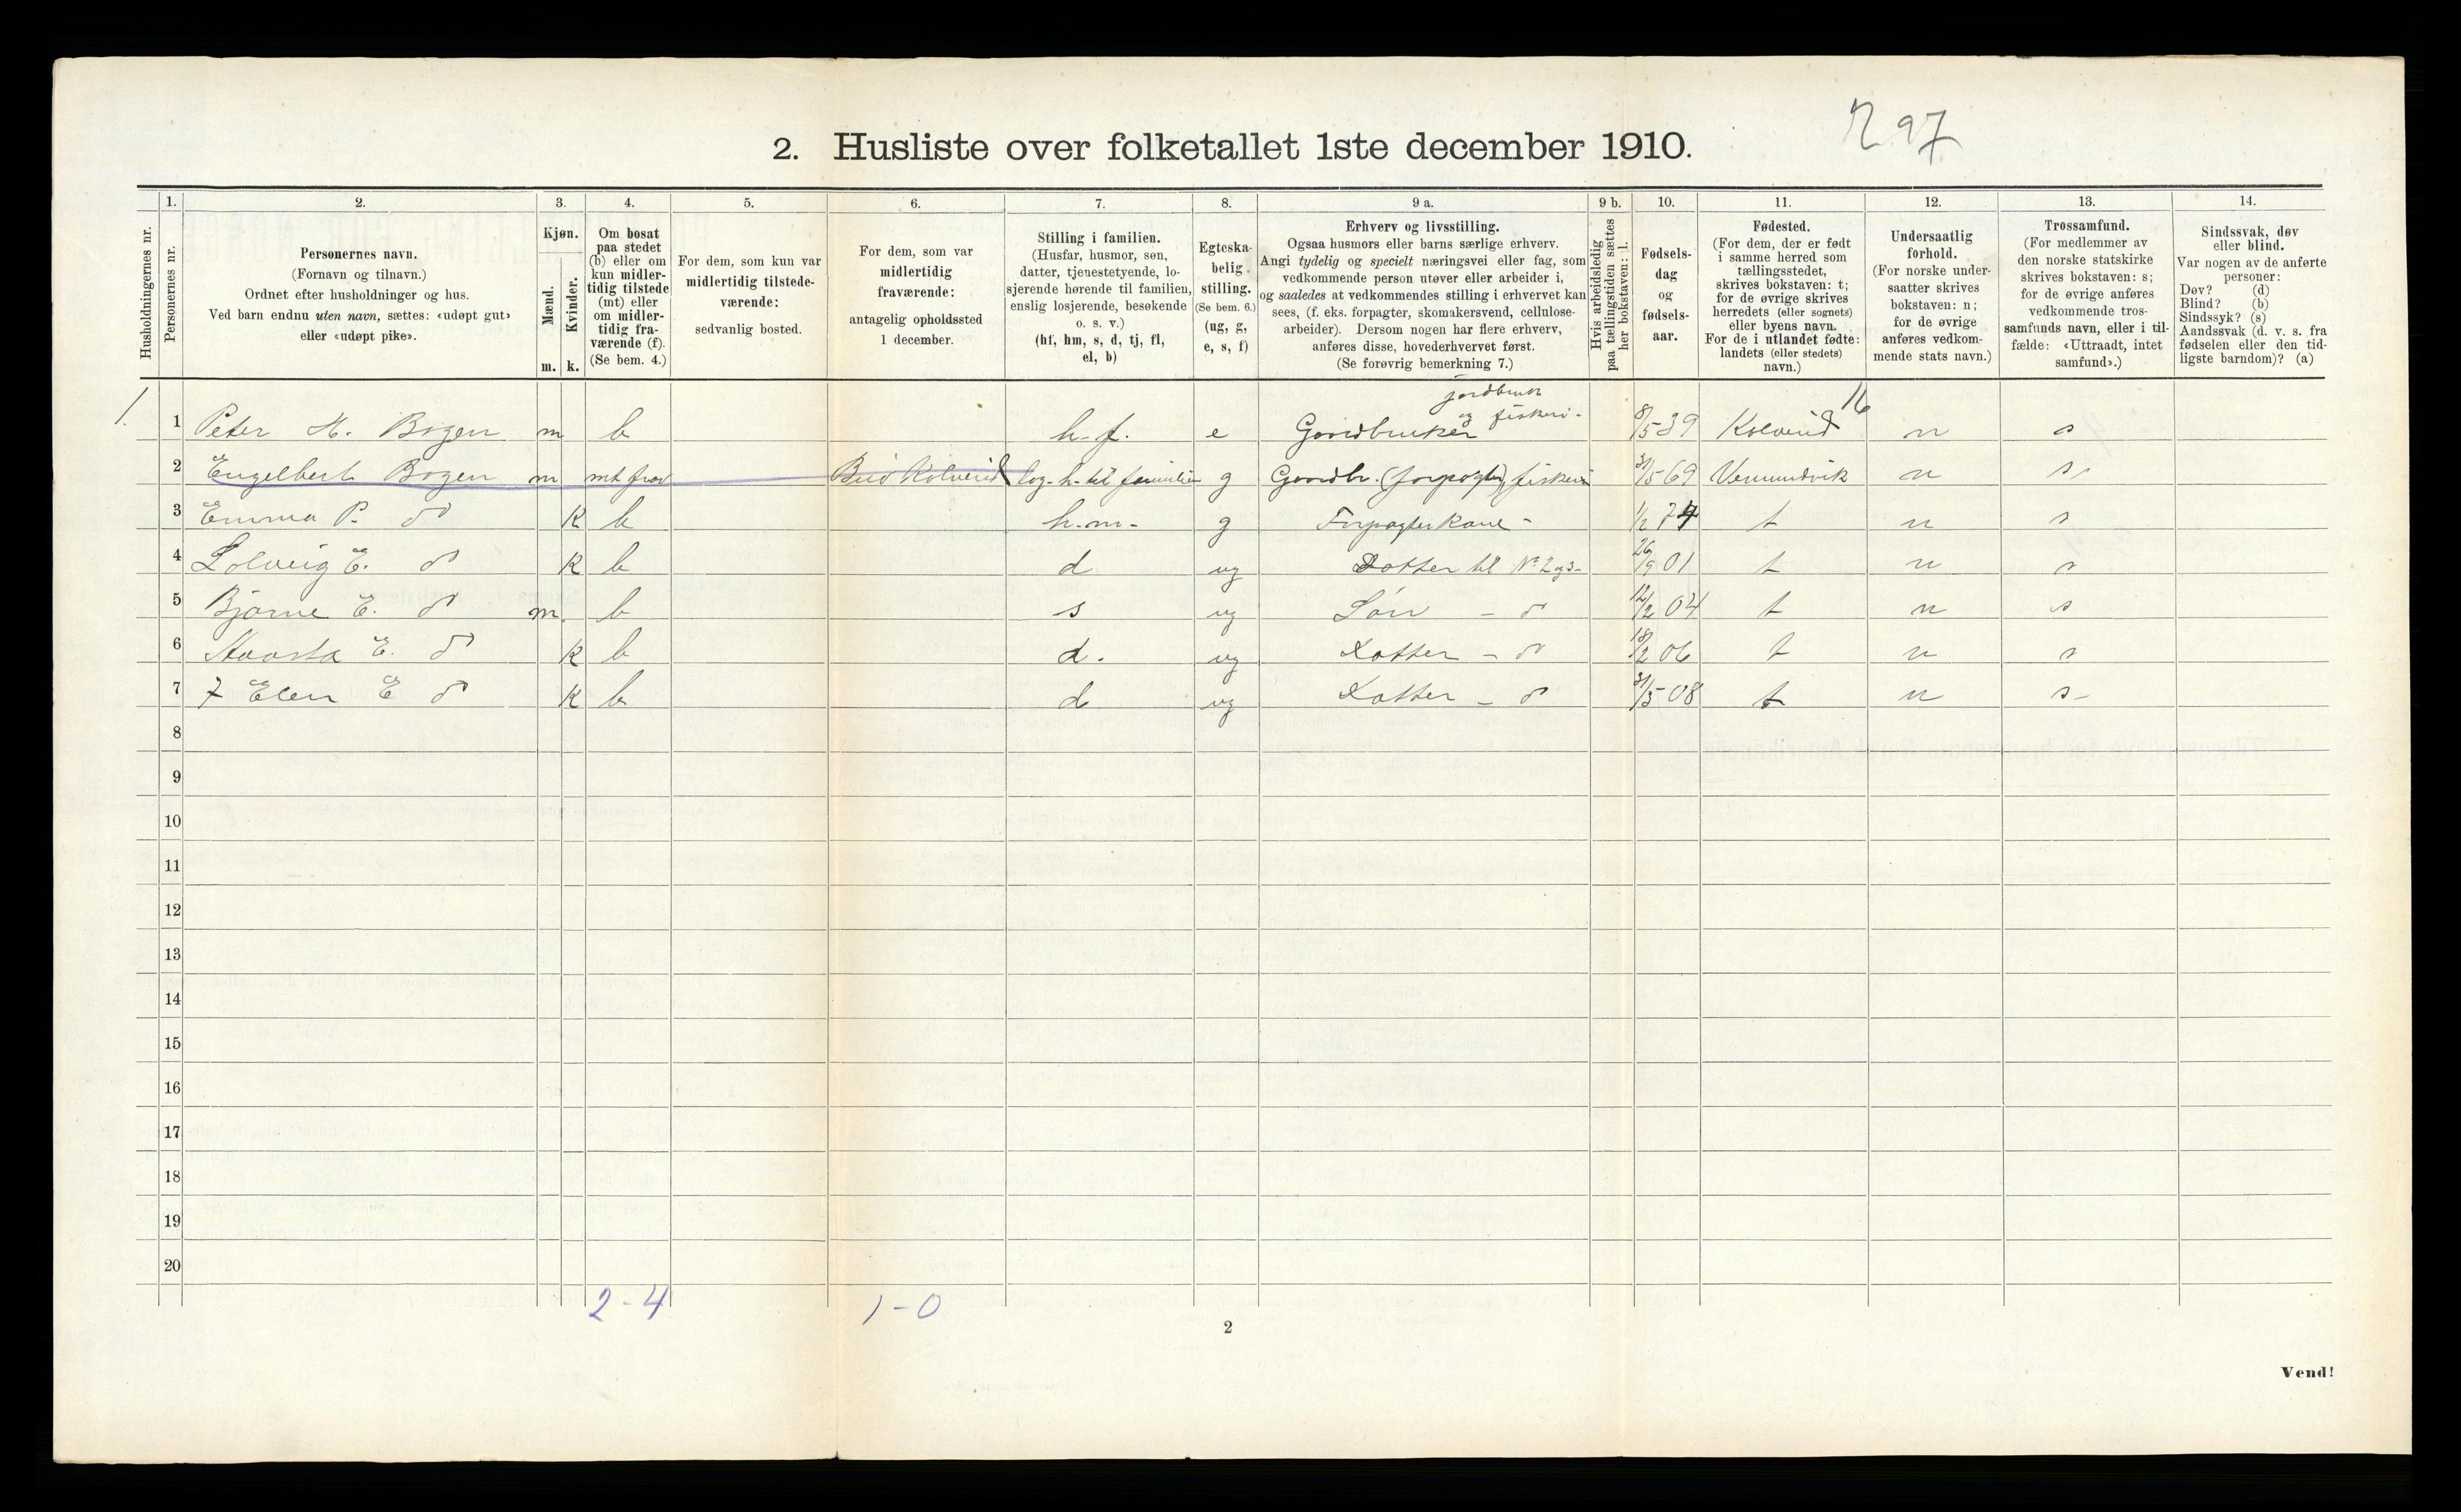 2. Husliste over folketallet 1ste december 1910.
297
Husholdningernes nr.
1.
Personernes nr.
2.
Personernes navn.
(Fornavn og tilnavn.)
Ordnet efter husholdninger og hus.
Ved barn endnu uten navn, sættes: «udøpt gut»
eller «udøpt pike».
3.
Kjøn.
Mænd.
Kvinder.
m. k.
4.
Om bosat
paa stedet
(b) eller om
kun midler-
tidig tilstede
(mt) eller
om midler-
tidig fra-
værende (f).
(Se bem. 4.)
5.
For dem, som kun var
midlertidig tilstede-
værende:
sedvanlig bosted.
6.
For dem, som var
midlertidig
fraværende:
antagelig opholdssted
1 december.
7.
Stilling i familien.
(Husfar, husmor, søn,
datter, tjenestetyende, lo-
sjerende hørende til familien,
enslig losjerende, besøkende
o. s. v.)
(hf, hm, s, d, tj, fl,
el, b)
8.
Egteska-
belig
stilling.
(Se bem. 6.)
(ug, g,
e, s, f)
9 a.
Erhverv og livsstilling.
Ogsaa husmors eller barns særlige erhverv.
Angi tydelig og specielt næringsvei eller fag, som
vedkommende person utøver eller arbeider i,
og saaledes at vedkommendes stilling i erhvervet kan
sees, (f. eks. forpagter, skomakersvend, cellulose-
arbeider). Dersom nogen har flere erhverv,
anføres disse, hovederhvervet først.
(Se forøvrig bemerkning 7.)
9 b.
Hvis arbeidsledig
paa tællingstiden sættes
her bokstaven: l.
10.
Fødsels-
dag
og
fødsels-
aar.
11.
Fødested.
(For dem, der er født
i samme herred som
tællingsstedet,
skrives bokstaven: t;
for de øvrige skrives
herredets (eller sognets)
eller byens navn.
For de i utlandet fødte:
landets (eller stedets)
navn.)
12.
Undersaatlig
forhold.
(For norske under-
saatter skrives
bokstaven: n;
for de øvrige
anføres vedkom-
mende stats navn.)
13.
Trossamfund.
(For medlemmer av
den norske statskirke
skrives bokstaven: s;
for de øvrige anføres
vedkommende tros-
samfunds navn, eller i til-
fælde: «Uttraadt, intet
samfund».)
14.
Sindssvak, døv
eller blind.
Var nogen av de anførte
personer:
Døv? (d)
Blind? (b)
Sindssyk? (s)
Aandssvak (d. v. s. fra
fødselen eller den tid-
ligste barndom)? (a)
jordbruk og fiskeri- 16
1. 1 Peter H. Bogen m b h-f. e Gaardbruker 8/5 39 Kolvereid n s
2 Engelbert Bogen m mt frav Kolvereid log-h-til familien g Gaardbr. (forpagter) fiskeri 31/5 69 Vemundvik n s
3 Emma P. do K b h.m- g Forpagterkone - 1/2 74 t n s
4 Solveig E. do K b d ug Datter til No 2 og 3- 26/9 01 t n s
5 Bjarne E. do m b s ug Søn - do 12/2 04 t n s
6 E. do K b d. ug Datter - do 18/2 06 t n s
7 Elen E do K b d ug Datter - do 31/5 08 t n s-
8
9
10
11
12
13
14
15
16
17
18
19
20
2-4 1-0
2
Vend!